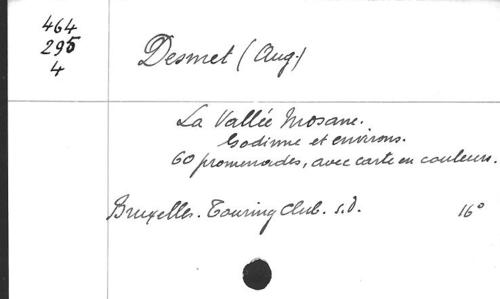 464
295
4
Desmet (Aug.)
La Vallée Mosane.
Godinne et environs.
60 promenades, avec carte en couleurs.
Bruxelles. Touring Club. s.d. 16°